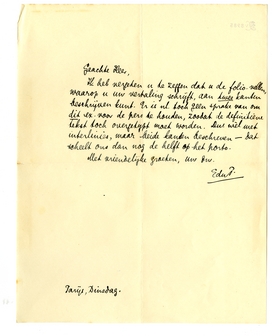 Geachte Heer,
Ik heb vergeten u te zeggen dat u de folio-vellen,
waarop u uw vertaling schrijft, aan twee kanten
beschrijven kunt. Er is nl toch geen sprake van om
dit ex. voor de pers te houden, zoodat de definitieve
tekst toch overgetypt moet worden. Dus wel met
interlinies, maar beide kanten beschreven — dat
scheelt ons dan nog de helft op het porto.
Met vriendelijke groeten, uw
EduP.
Parijs, Dinsdag.